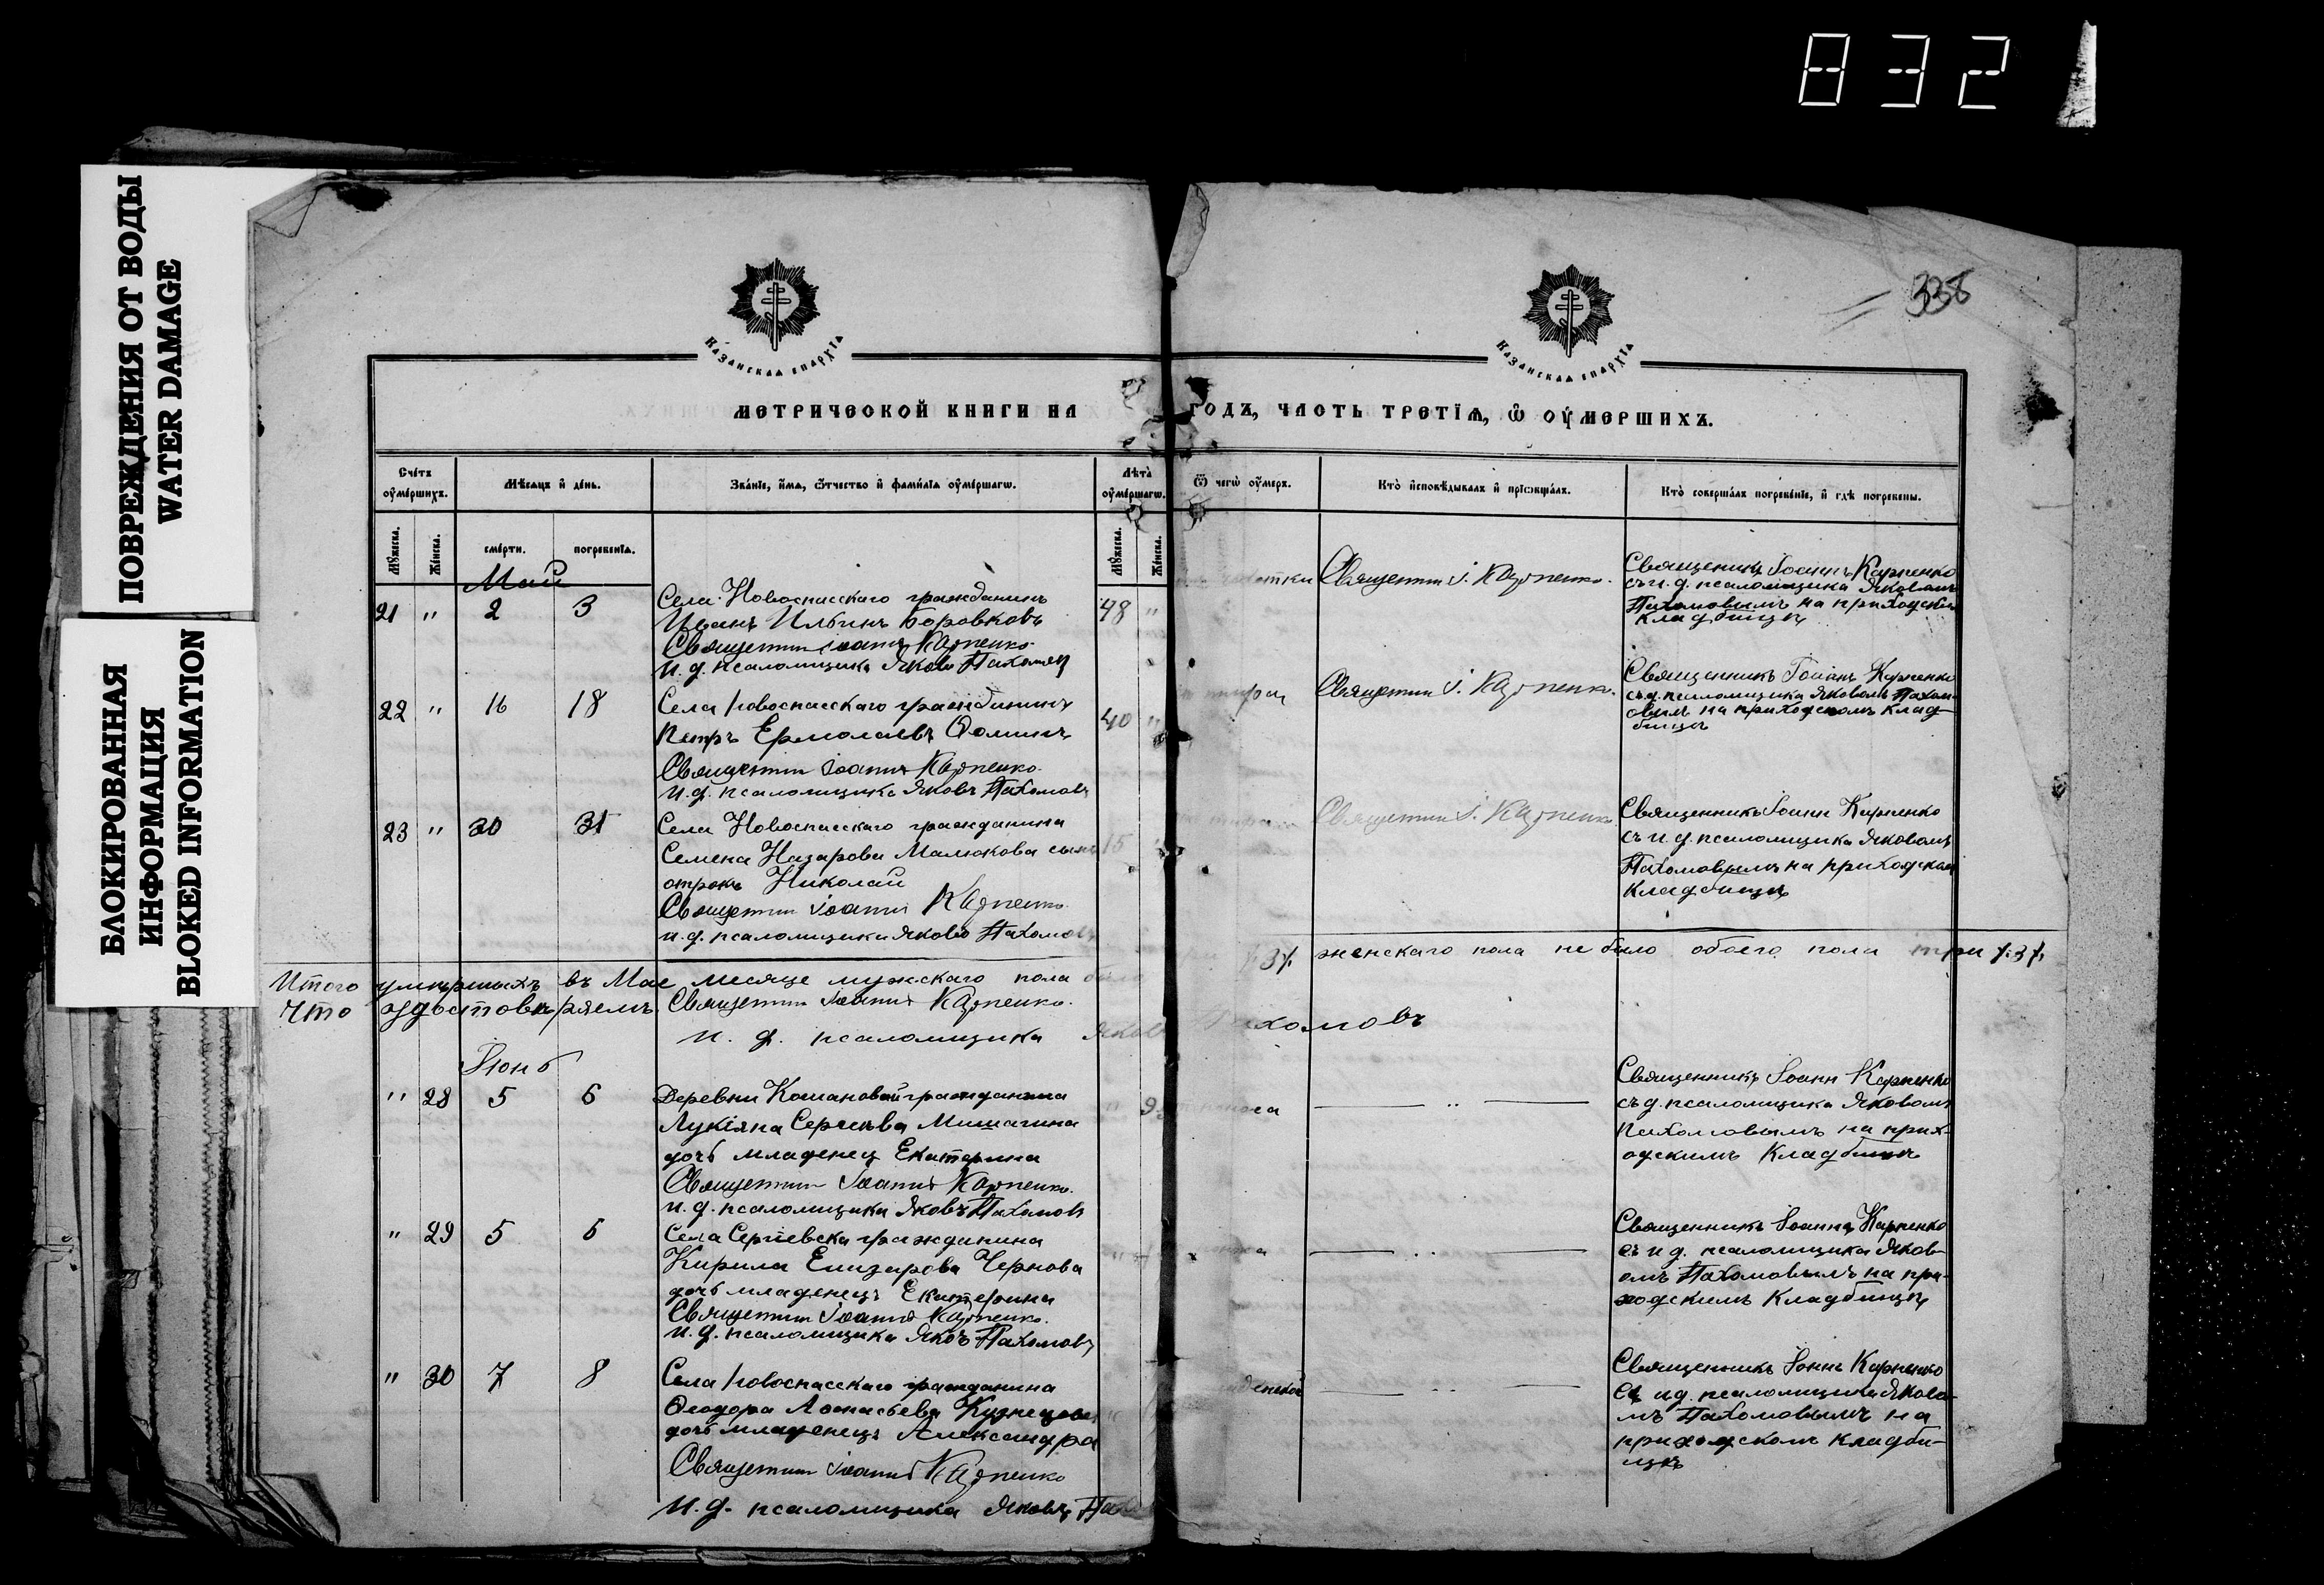 832
ПОВРЕЖДЕНИЯ ОТ ВОДЫ
WATER DAMAGE
БЛОКИРОВАННАЯ
ИНФОРМАЦИЯ
BLOKED INFORMATION
338
КАЗАНСКАѦ ЕПАРХЇѦ
КАЗАНСКАѦ ЕПАРХЇѦ
МЕТРИЧЕСКОЙ КНИГИ НА ГОДЪ, ЧАСТЬ ТРЕТЇѦ, Ѽ ОУМЕРШИХЪ.
Счетъ оумершихъ.
Мѣсѧцъ и день.
Званїе, имѧ, ѿчество и фамилїѧ оумершагѡ.
Лѣта оумершагѡ.
Ѿ чегѡ оумеръ.
Кто исповѣдывалъ и прїѡбщалъ.
Кто совершалъ погребенїе, и гдѣ погребены.
Мужеска.
Женска.
смерти.
погребенїѧ.
Мужеска.
Женска.
Май
21 " 2 3 Села Новоспасскаго гражданинъ
Иванъ Ильинъ Боровковъ 48 "
Священник Іоаннъ Карпенко
и. д. псаломщика Яковъ Пахомов
Священник І. Карпенко.
Священникъ Іоаннъ Карпенко
съ и. д. псаломщика Яковомъ
Пахомовымъ на приходском
кладбищѣ
22 " 16 18 Села Новоспасскаго гражданинъ
Петръ Ермолаевъ Фоминъ 40 "
Священник Іоаннъ Карпенко.
и. д. псаломщика Яковъ Пахомовъ
Священник І. Карпенко.
Священникъ Іоаннъ Карпенко
съ д. псаломщика Яковомъ Пахом-
овымъ на приходскомъ клад-
бищѣ
23 " 30 31 Села Новоспасскаго гражданина
Семена Назарова Малюкова сынъ 15
отрокъ Николай
Священник Іоаннъ Карпенко
и. д. псаломщика Яковъ Пахомовъ
Священник І. Карпенко
Священникъ Іоанн Карпенко
съ и. д. псаломщика Яковомъ
Пахомовымъ на приходском
кладбищѣ
Итого умершихъ въ Мае месяце мужскаго пола было три /:3/: женскаго пола не было обоего пола три /:3/:
Что удостовѣряемъ. Священник Іоаннъ Карпенко.
и. д. псаломщика Яковъ Пахомовъ
Іюнь
" 28 5 6 Деревни Комановой гражданина
Лукіяна Сергѣева Мишагина
дочь младенец Екатерина
Священник Іоаннъ Карпенко.
и. д. псаломщика Яковъ Пахомов
Священникъ Іоанн Карпенко
съ д. псаломщика Яковомъ
Пахомовымъ на прих-
одскимъ кладбищѣ
" 29 5 6 Села Сергіевска гражданина
Кирила Елизарова Чернова
дочь младенецъ Екатерина
Священник Іоаннъ Карпенко.
и. д. псаломщика Яковъ Пахомовъ
Священникъ Іоаннъ Карпенко
съ и д. псаломщика Яков-
омъ Пахомовымъ на при-
ходскимъ кладбищѣ
" 30 7 8 Села Новоспасскаго гражданина
Феодора Афонасьева Кузнецова "
дочь младенецъ Александра
Священник Іоаннъ Карпенко
и. д. псаломщика Яковъ
Священникъ Іоаннъ Карпенко
съ и д. псаломщика Яково-
мъ Пахомовымъ на
приходскомъ кладби-
щѣ